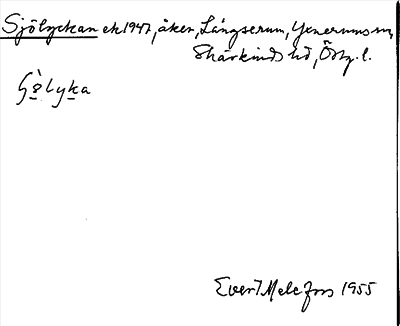 Sjölyckan ek 1947, åker, Långserum, Yxnerums sn,
Skärkinds hd, Östg. l.
Evert Melefors 1955